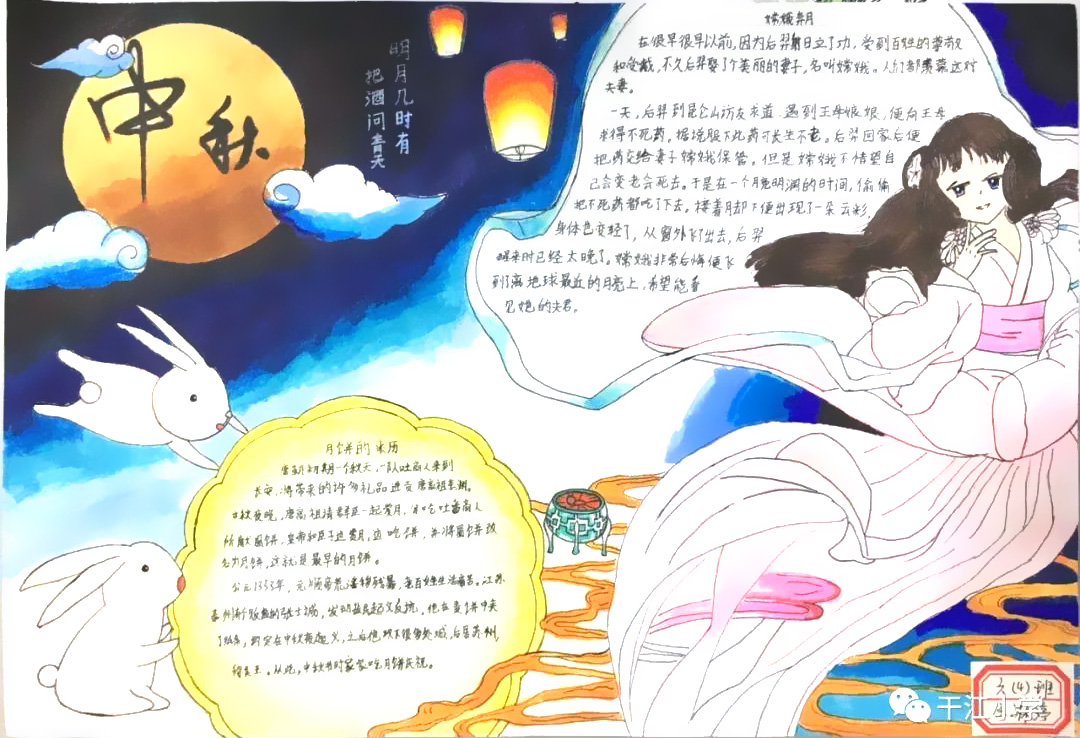 中秋
明月几时有
把酒问青天
嫦娥奔月
在很早很早以前,因为后羿射日立了功,受到百姓的尊敬
和爱戴,不久后羿娶了个美丽的妻子,名叫嫦娥。人们都羡慕这对
夫妻。
一天,后羿到昆仑山访友求道,遇到王母娘娘,便向王母
求得不死药,据说服下此药可长生不老。后羿回家后便
把药交给妻子嫦娥保管。但是嫦娥不情望自
己会变老会死去。于是在一个月光明润的时间,偷偷
地不死药都吃了下去。接着月却下便出现了一朵云彩,
身体也变轻了,从窗外飞了出去,后羿
醒来时已经太晚了。嫦娥非常后悔便飞
到了离地球最近的月亮上,希望能看
见她的夫君。
月饼的来历
唐朝初期一个秋天,一队吐商人来到
长安,将带来的许多礼品进贡唐高祖李渊。
中秋夜晚,唐高祖请群臣一起赏月,并吃吐蕃商人
所献圆饼,皇帝和臣子边赏月,边吃饼,并将圆饼改
名为月饼,这就是最早的月饼。
公元1353年,元顺帝荒淫残暴,老百姓生活痛苦。江苏
泰州有个贩盐的张士诚,发动盐民起义反抗,他在麦饼中夹
了纸条,约定在中秋夜起义,之后他攻下很多处城,后居苏州,
称吴王。从此,中秋节时家家吃月饼庆祝。
六(4)班
干江小学